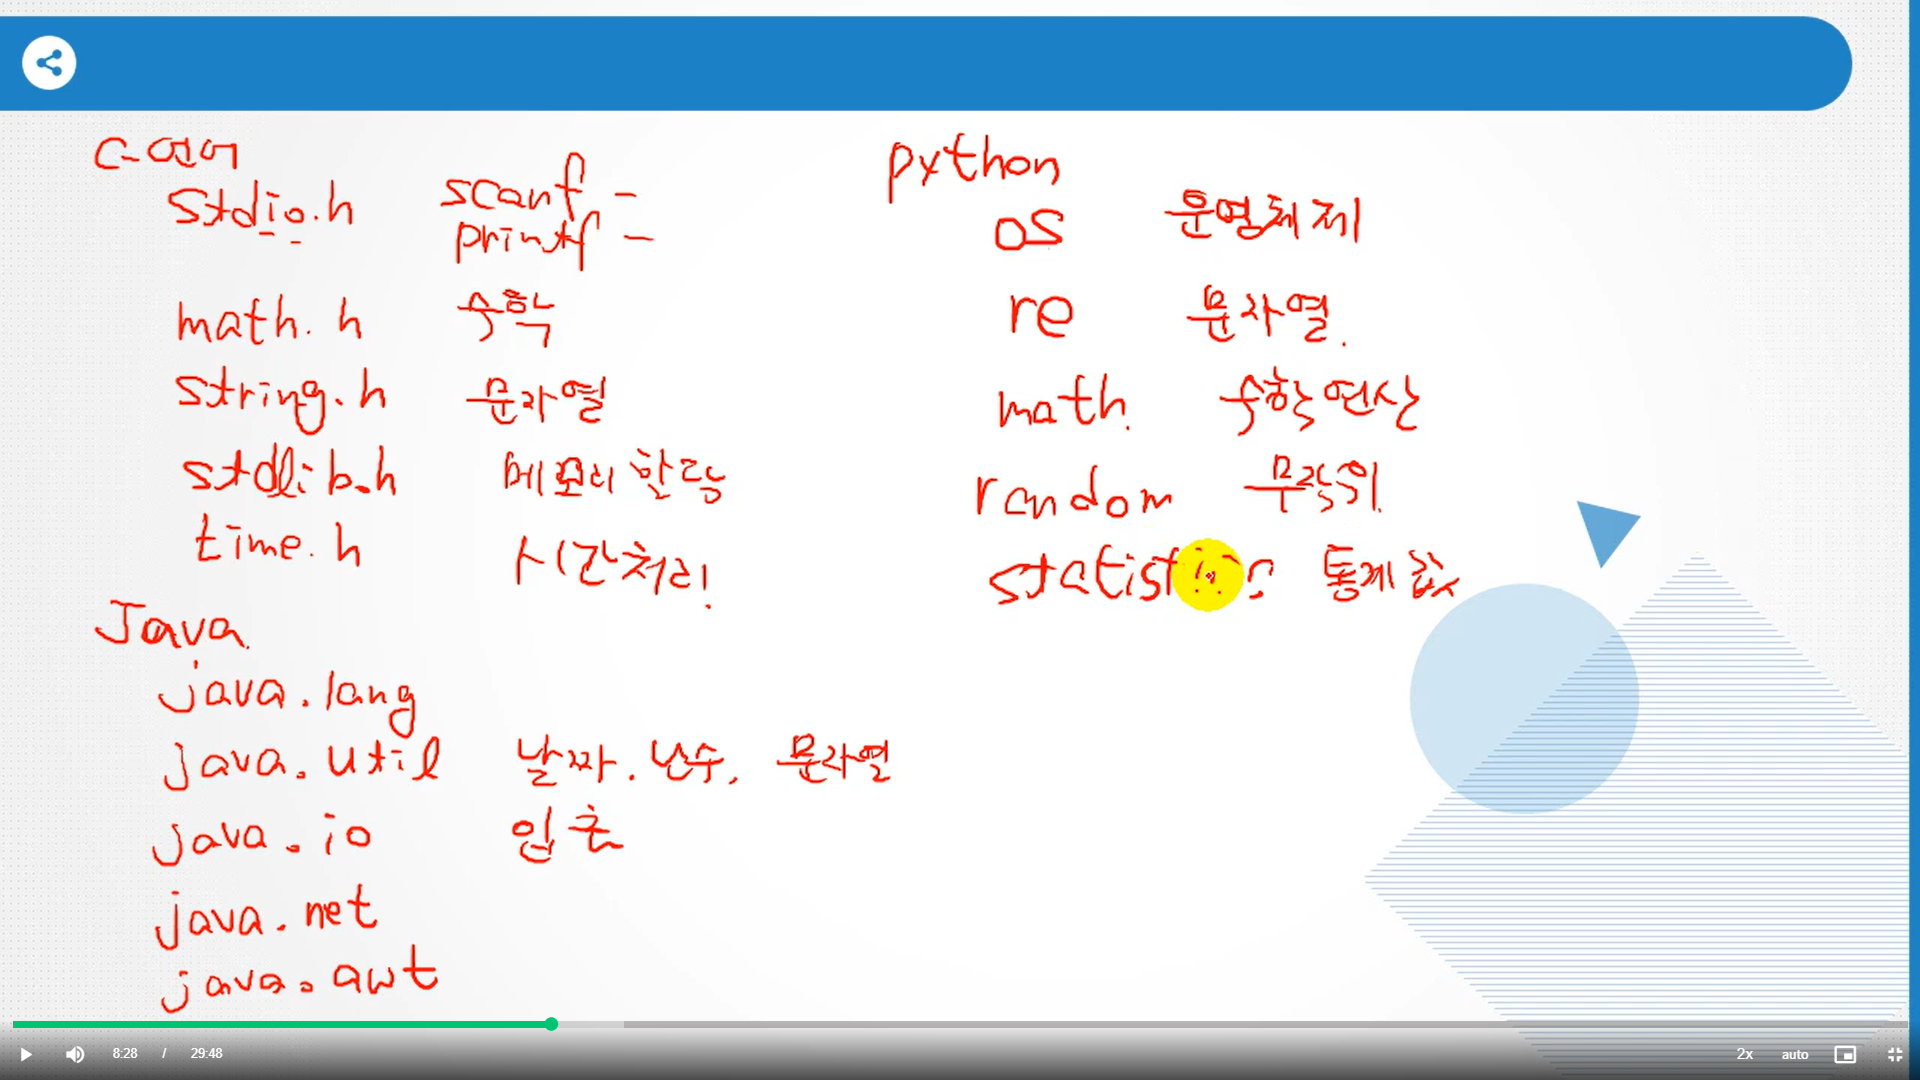 C-언어
stdio.h scanf -
printf -
math.h 수학
string.h 문자열
stdlib.h 메모리 할당
time.h 시간처리!
Java
java.lang
java.util 날짜. 난수, 문자열
java.io 입출
java.net
java.awt
python
os 운영체제
re 문자열.
math. 수학연산
random 무작위
통계값
8:28 / 29:48
2x auto